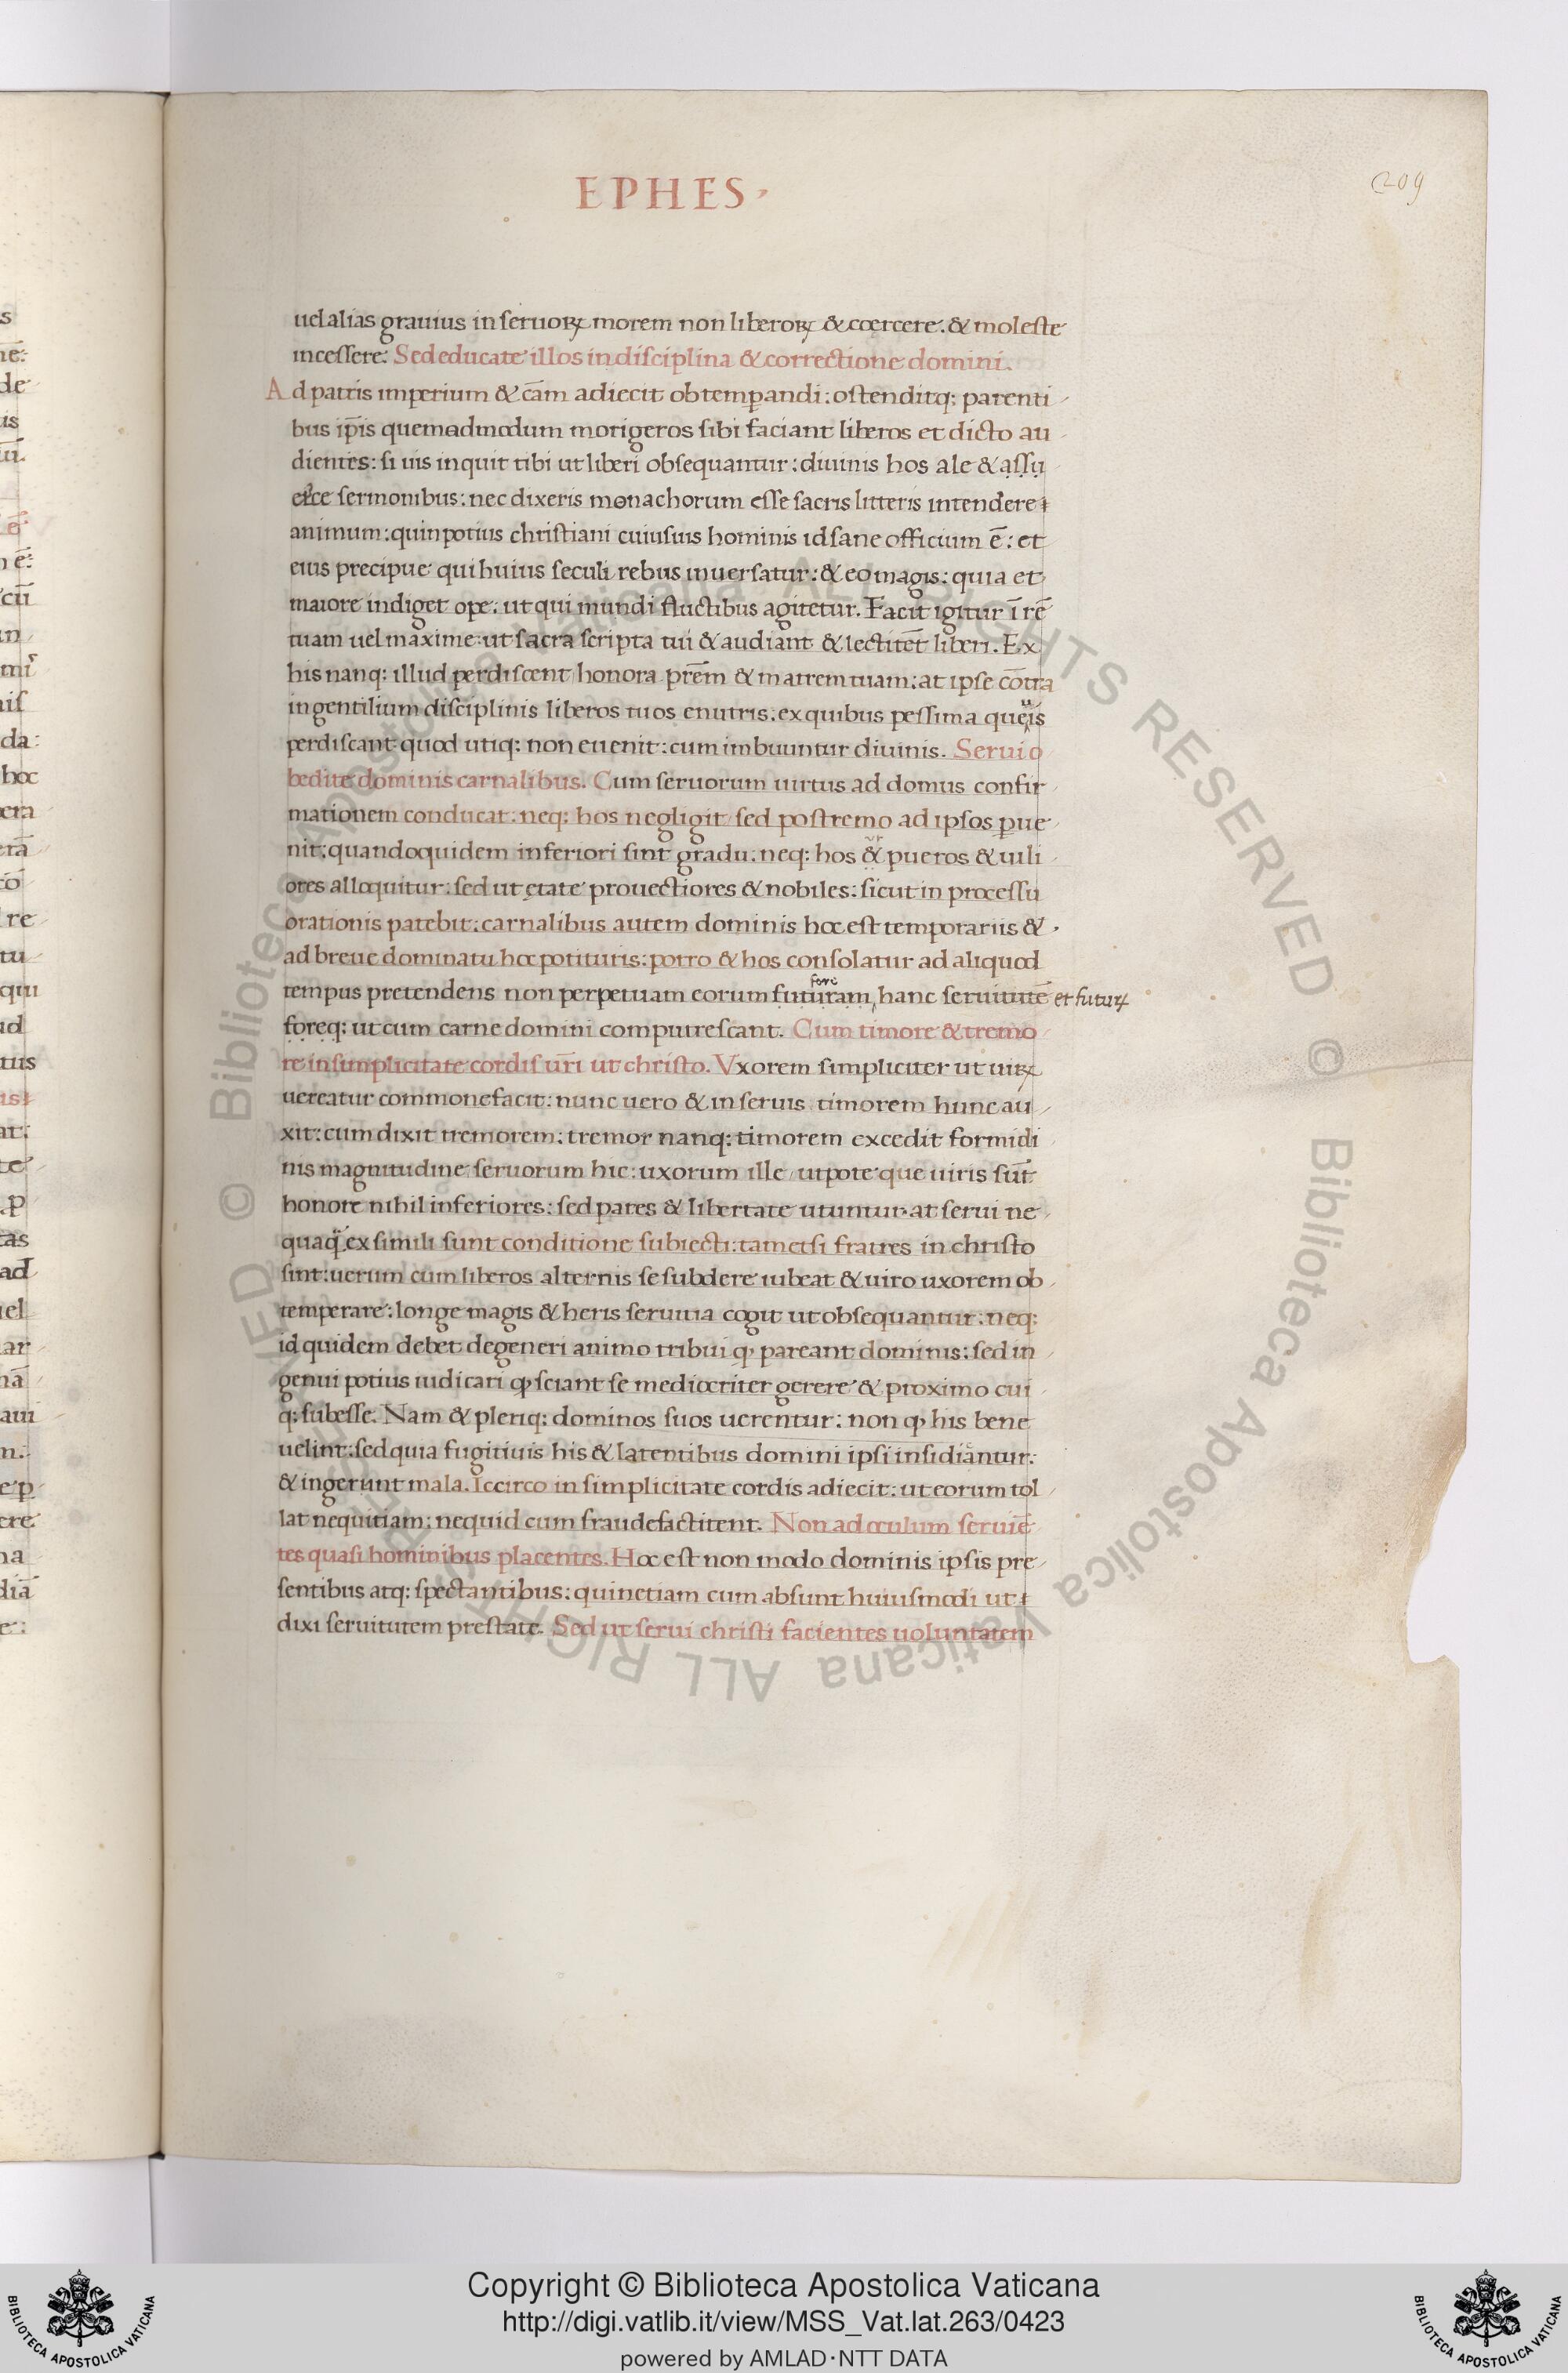 EPHES
209
uel alias grauius in seruoꝝ morem non liberoꝝ & coercere. & moleste
incessere: Sed educate illos in disciplina & correctione domini.
Ad patris imperium & cām adiecit obtemꝑandi: ostenditq: parenti
bus ip̄is quemadmodum morigeros sibi faciant liberos et dicto au
dientes: si uis inquit tibi ut liberi obsequantur: diuinis hos ale & assu
esce sermonibus: nec dixeris monachorum esse sacris litteris intendere
animum: quin potius christiani cuiusuis hominis id sane officium ē: et
eius precipue qui huius seculi rebus inuersatur: & eo magis: quia et
maiore indiget ope: ut qui mundi fluctibus agitetur. Facit igitur ī rē
tuam uel maxime: ut sacra scripta tui & audiant & lectitēt liberi. Ex
his nanq: illud perdiscent honora prēm & matrem tuam: at ipse cōtra
in gentilium disciplinis liberos tuos enutris: ex quibus pessima queuis
perdiscant quod utiq: non euenit: cum imbuuntur diuinis. Serui o
bedite dominis carnalibus. Cum seruorum uirtus ad domus confir
mationem conducat: neq: hos negligit sed postremo ad ipsos ꝑue
nit: quandoquidem inferiori sint gradu: neq: hos & pueros & uili
ores alloquitur: sed ut ętate prouectiores & nobiles: sicut in processu
orationis patebit: carnalibus autem dominis hoc est temporariis &
ad breue dominatu hoc potituris: porro & hos consolatur ad aliquod
tempus pretendens non perpetuam eorum futuram hanc seruitutē et futuꝝ
fore
foreq: ut cum carne domini computrescant. Cum timore & tremo
re in simplicitate cordis ur̄i ut christo. Vxorem simpliciter ut uiꝝ
uereatur commonefacit: nunc uero & in seruis timorem hunc au
xit: cum dixit tremorem: tremor nanq: timorem excedit formidi
nis magnitudine: seruorum hic: uxorum ille utpote que uiris sūt
honore nihil inferiores: sed pares & libertate utuntur. at serui ne
quaq̈ ex simili sunt conditione subiecti: tametsi fratres in christo
sint: uerum cum liberos alternis se subdere iubeat & uiro uxorem ob
temperare: longe magis & heris seruitia cogit ut obsequantur: neq:
id quidem debet degeneri animo tribui ꝙ pareant dominis: sed in
genui potius iudicari ꝙ sciant se mediocriter gerere & proximo cui
q: subesse. Nam & pleriq: dominos suos uerentur: non ꝙ his bene
uelint: sed quia fugitiuis his & latentibus domini ipsi insidiantur:
& ingerunt mala. Iccirco in simplicitate cordis adiecit: ut eorum tol
lat nequitiam: nequid cum fraude factitent. Non ad oculum seruiē
tes quasi hominibus placentes. Hoc est non modo dominis ipsis pre
sentibus atq: spectantibus: quinetiam cum absunt huiusmodi ut
dixi seruitutem prestate. Sed ut serui christi facientes uoluntatem
Copyright © Biblioteca Apostolica Vaticana
http://digi.vatlib.it/view/MSS_Vat.lat.263/0423
powered by AMLAD·NTT DATA